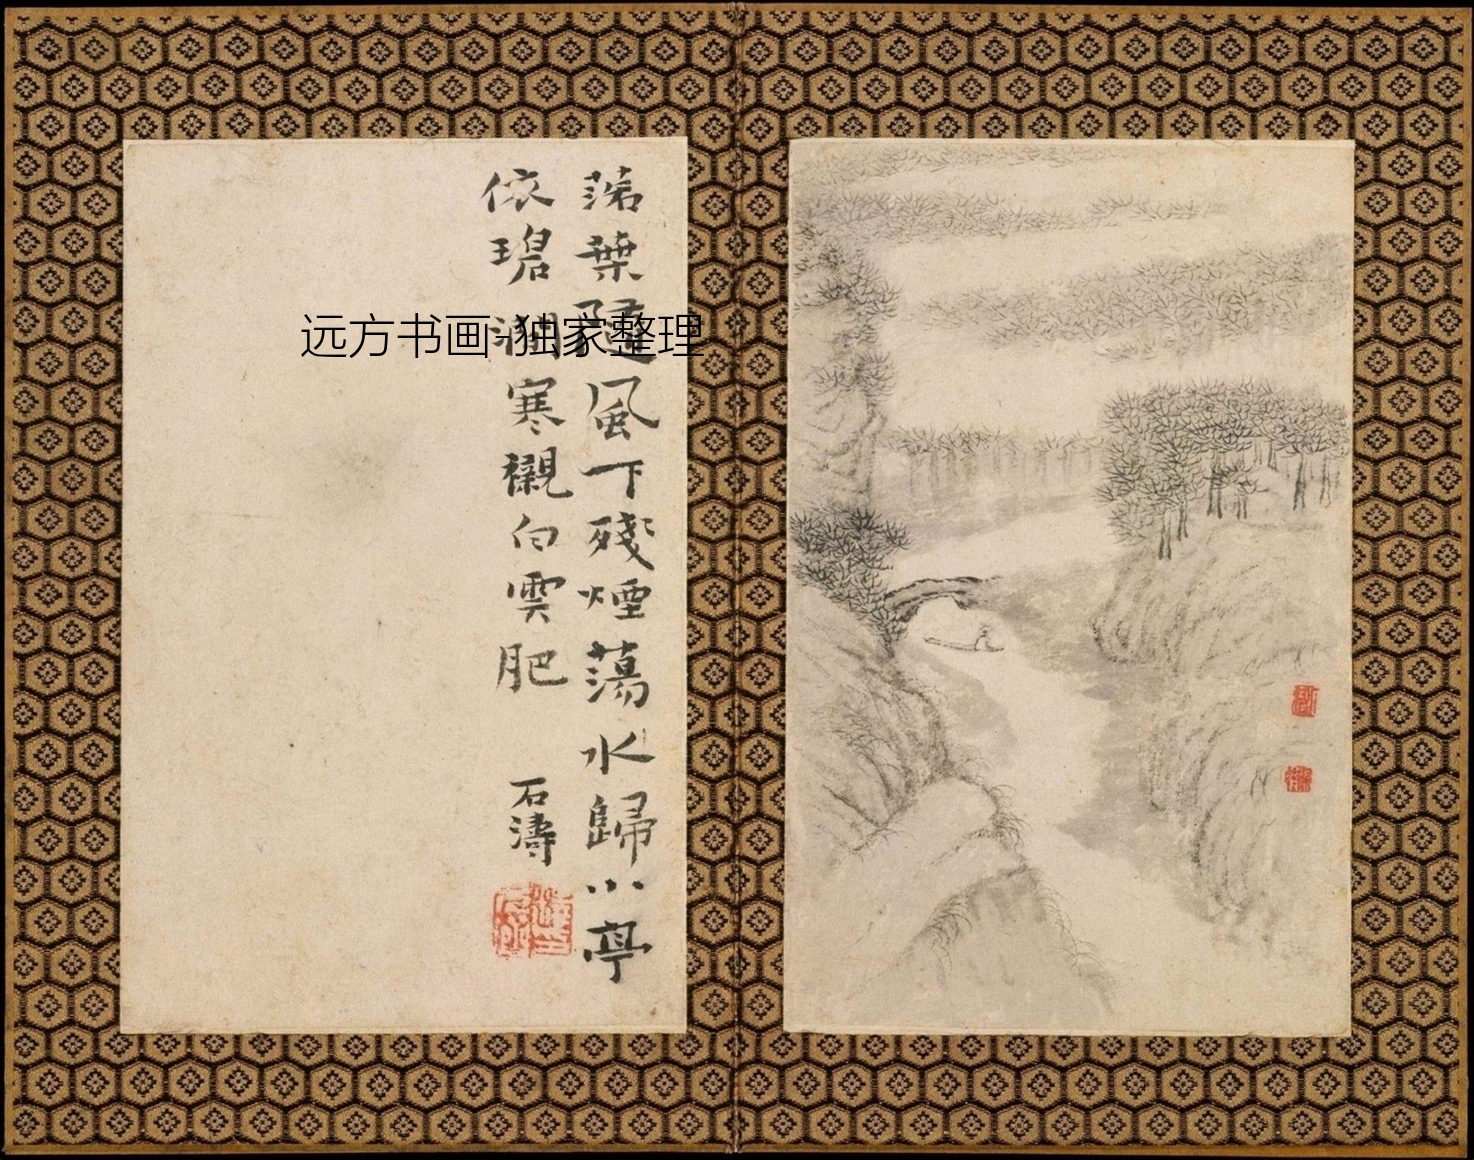 落葉隨風下殘煙蕩水歸小亭
依碧澗寒襯白雲肥
石濤
远方书画 独家整理